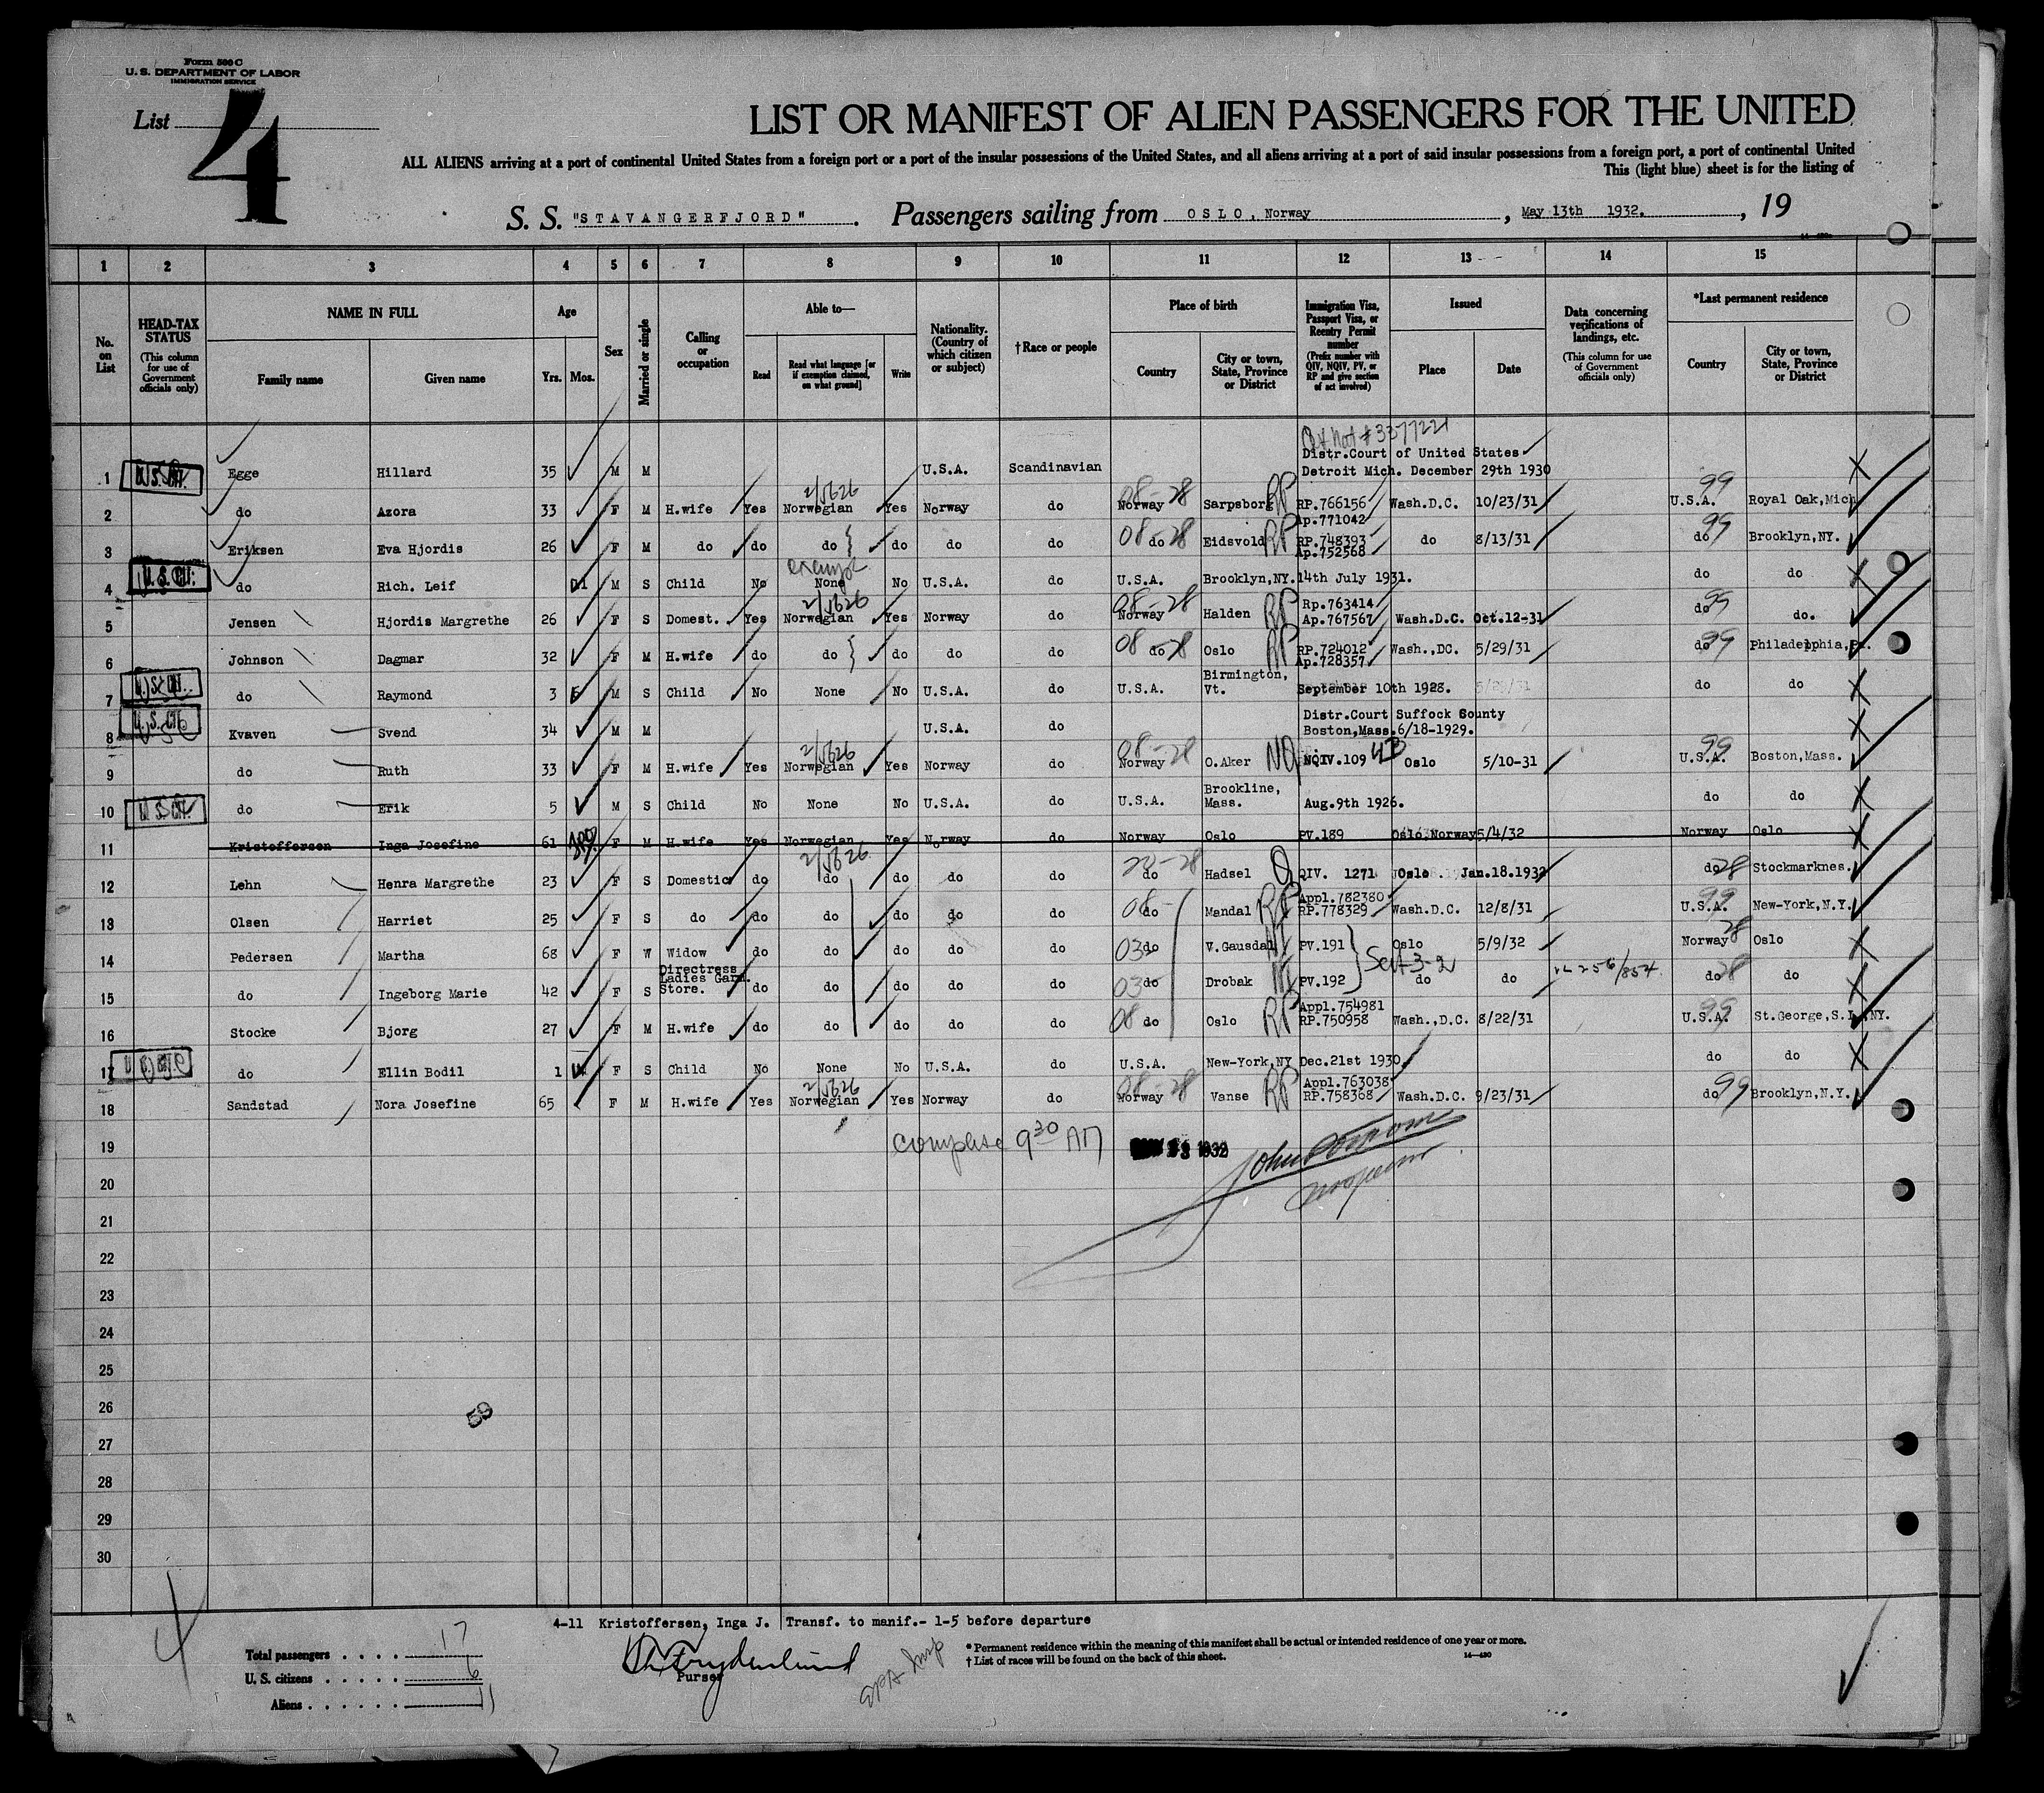 Form 500 C
U. S. DEPARTMENT OF LABOR
IMMIGRATION SERVICE
List 4
LIST OR MANIFEST OF ALIEN PASSENGERS FOR THE UNITED
ALL ALIENS arriving at a port of continental United States from a foreign port or a port of the insular possessions of the United States, and all aliens arriving at a port of said insular possessions from a foreign port, a port of continental United
This (light blue) sheet is for the listing of
S. S. "STAVANGERFJORD". Passengers sailing from OSLO, Norway, May 13th 1932., 19
1 2 3 4 5 6 7 8 9 10 11 12 13 14 15
No. on List
HEAD-TAX STATUS
(This column for use of Government officials only)
NAME IN FULL
Family name
Given name
Age
Yrs. Mos.
Sex
Married or single
Calling or occupation
Able to—
Read
Read what language [or if exemption claimed, on what ground]
Write
Nationality. (Country of which citizen or subject)
†Race or people
Place of birth
Country
City or town, State, Province or District
Immigration Visa, Passport Visa, or Reentry Permit number
(Prefix number with QIV, NQIV, PV, or RP and give section of act involved)
Issued
Place
Date
Data concerning verifications of landings, etc.
(This column for use of Government officials only)
*Last permanent residence
Country
City or town, State, Province or District
#3377221
1 U.S. CIT. Egge Hillard 35 M M U.S.A. Scandinavian Distr.Court of United States Detroit Mich. December 29th 1930
2 do Azora 33 F M H.wife Yes Norwegian Yes Norway do Norway 08-28 Sarpsborg RP RP.766156 Ap.771042 Wash.D.C. 10/23/31 U.S.A. 99 Royal Oak,Mich
3 Eriksen Eva Hjordis 26 F M do do do do do do do 08-28 Eidsvold RP RP.748393 Ap.752568 do 8/13/31 do 99 Brooklyn,NY.
4 U.S. CIT. do Rich. Leif M S Child No exempt None No U.S.A. do U.S.A. Brooklyn,NY. 14th July 1931. do do
5 Jensen Hjordis Margrethe 26 F S Domest. Yes Norwegian Yes Norway do Norway 08-28 Halden RP Rp.763414 Ap.767567 Wash.D.C. Oct.12-31 do 99 do.
6 Johnson Dagmar 32 F M H.wife do do do do do do 08-28 Oslo RP RP.724012 Ap.728357 Wash.,DC. 5/29/31 do 99 Philadelphia,Pa.
7 U.S. CIT. do Raymond 3 M S Child No None No U.S.A. do U.S.A. Birmington, Vt. September 10th 1928. do do
8 U.S. CIT. Kvaven Svend 34 M M U.S.A. do Distr.Court Suffock County Boston,Mass.6/18-1929.
9 do Ruth 33 F M H.wife Yes Norwegian Yes Norway do Norway 08-28 O.Aker NQ NQIV.109 Oslo 5/10-31 U.S.A. 99 Boston,Mass.
10 U.S. CIT. do Erik 5 M S Child No None No U.S.A. do U.S.A. Brookline, Mass. Aug.9th 1926. do do
11 Kristoffersen Inga Josefine 61 F M H.wife Yes Norwegian Yes Norway do Norway Oslo PV.189 Oslo,Norway 5/4/32 Norway Oslo
12 Lehn Henra Margrethe 23 F S Domestic do do do do do do Hadsel Q QIV. 1271 Oslo Jan.18.1932 do 28 Stockmarknes.
13 Olsen Harriet 25 F S do do do do do do do 08- Mandal RP Appl.782380 RP.778329 Wash.D.C. 12/8/31 U.S.A. 99 New-York,N.Y.
14 Pedersen Martha 68 F W Widow do do do do do do 03 V.Gausdal PV.191 Oslo 5/9/32 Norway 28 Oslo
15 do Ingeborg Marie 42 F S Directress Ladies Garm. Store. do do do do do do 03 Drobak PV.192 Sect 3-2 do do do 28 do
16 Stocke Bjorg 27 F M H.wife do do do do do do 08 Oslo RP Appl.754981 RP.750958 Wash.,D.C. 8/22/31 U.S.A. 99 St.George,S.I.,NY.
17 do Ellin Bodil 1 F S Child No None No U.S.A. do U.S.A. New-York,NY Dec.21st 1930. do do
18 Sandstad Nora Josefine 65 F M H.wife Yes Norwegian Yes Norway do Norway 08-28 Vanse RP Appl.763038 RP.758368 Wash.D.C. 9/23/31 do 99 Brooklyn,N.Y.
19 complete 9 30 AM 1932
20
21
22
23
24
25
26
59
27
28
29
30
4-11 Kristoffersen, Inga J. Transf. to manif.- 1-5 before departure
Total passengers . . . . 17
U. S. citizens . . . . . 6
Aliens . . . . . . 11
Purser
* Permanent residence within the meaning of this manifest shall be actual or intended residence of one year or more.
† List of races will be found on the back of this sheet.
14—430